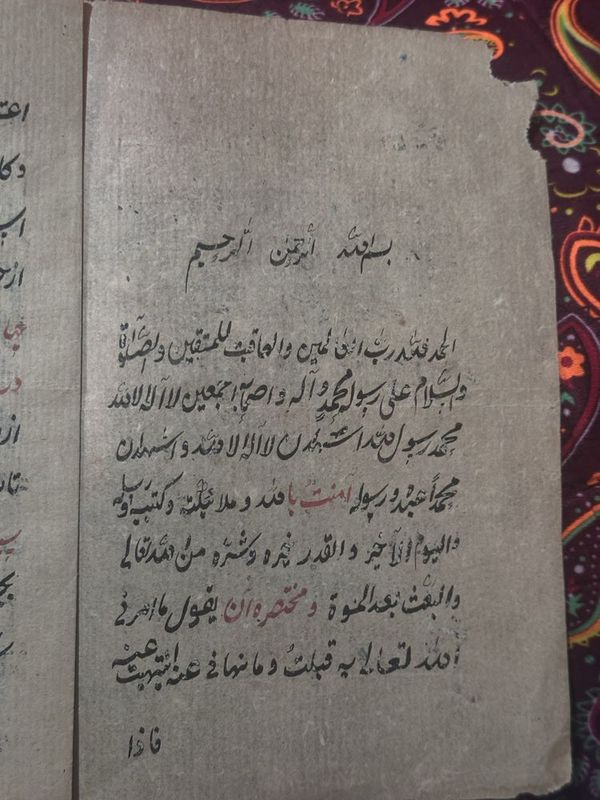 بسم الله الرحمن الرحيم
الحمد لله رب العالمين والعاقبة للمتقين والصلوة
والسلام على رسوله محمد وآله واصحابه اجمعين لا اله الا الله
محمد رسول الله اشهد ان لا اله الا الله واشهد ان
محمداً عبده ورسوله آمنت بالله وملائكته وكتبه ورسله
واليوم الآخر والقدر خيره وشره من الله تعالى
والبعث بعد الموة ومختصره آن يقول ما امرني
الله تعالى به قبلت وما نهاني عنه انتهيت عنه
فاذا